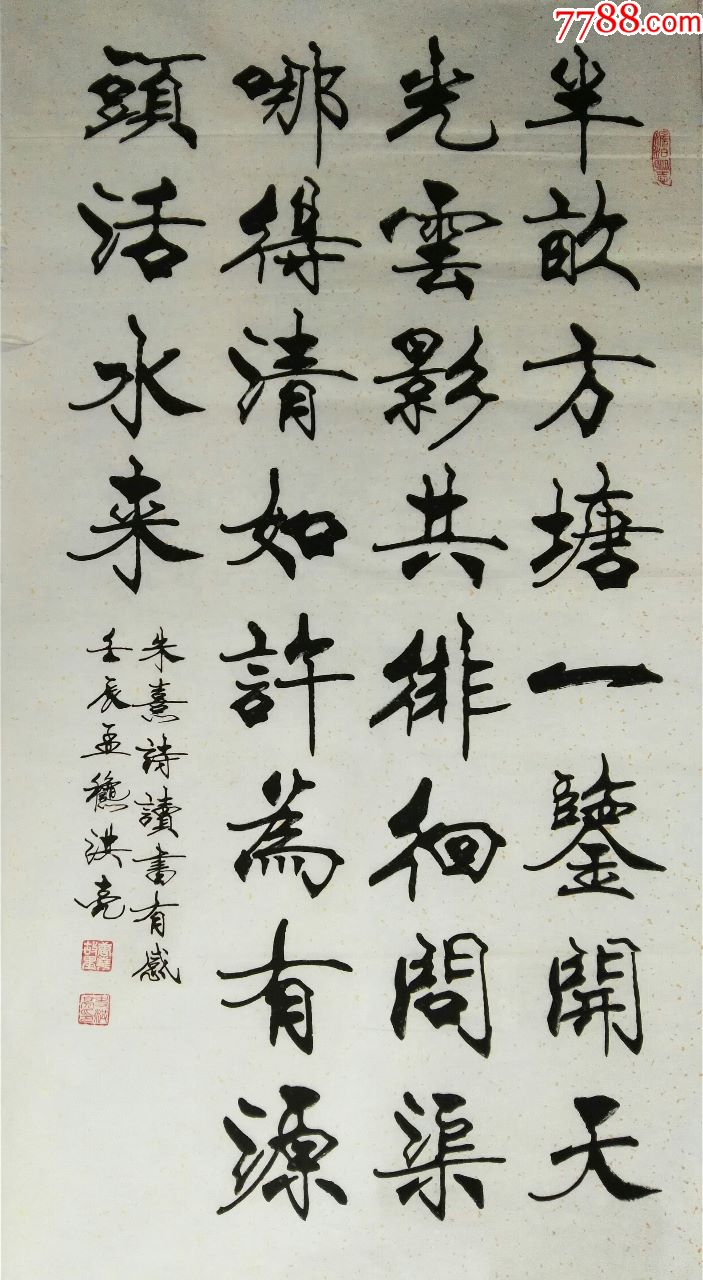 7788.com
半畝方塘一鑒開天
光雲影共徘徊問渠
哪得清如許為有源
頭活水来
朱熹詩讀書有感
壬辰孟穐洪亮